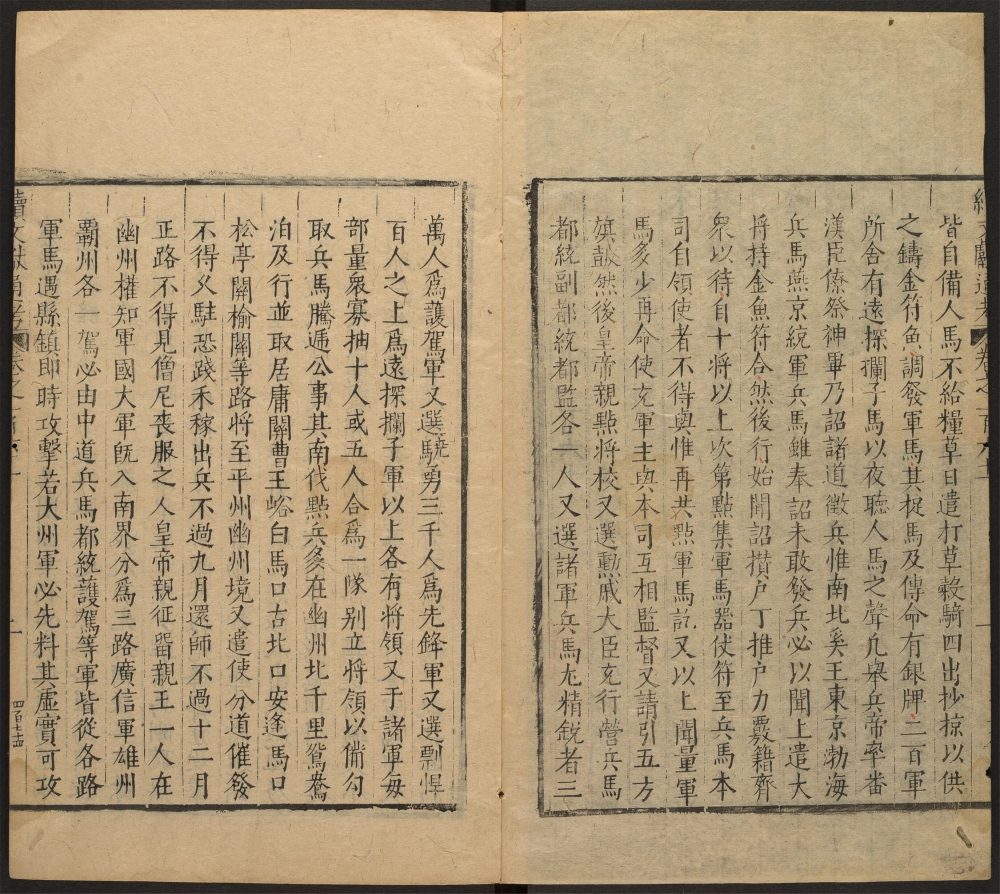 皆自備人馬不給糧草日遣打草穀騎四出抄掠以供
之鑄金符魚調發軍馬其捉馬及傳命有銀牌二百軍
所舍有遠探攔子馬以夜聽人馬之聲凡舉兵帝率畨
漢臣僚祭神畢乃詔諸道徵兵惟南北奚王東京渤海
兵馬燕京統軍兵馬雖奉詔未敢發兵必以聞上遣大
將持金魚符合然後行始聞詔攅户丁推户力覈籍齊
衆以待自十將以上次第點集軍馬器仗符至兵馬本
司自領使者不得與惟再共點軍馬訖又以上聞量軍
馬多少再命使充軍主與本司互相監督又請引五方
旗皷然後皇帝親點將校又選勲戚大臣充行營兵馬
都統副都統都監各一人又選諸軍兵馬尤精銳者三
萬人爲護駕軍又選驍勇三千人爲先鋒軍又選剽悍
百人之上爲遠探攔子軍以上各有將領又于諸軍每
部量衆寡抽十人或五人合爲一隊别立將領以俻勾
取兵馬騰遞公事其南伐點兵多在幽州北千里鴛鴦
泊及行並取居庸關曹王峪白馬口古北口安逹馬口
松亭關榆關等路將至平州幽州境又遣使分道催發
不得乆駐恐踐禾稼出兵不過九月還師不過十二月
正路不得見僧尼喪服之人皇帝親征畱親王一人在
幽州權知軍國大軍旣入南界分爲三路廣信軍雄州
霸州各一駕必由中道兵馬都統護駕等軍皆從各路
軍馬遇縣鎮即時攻擊若大州軍必先料其虛實可攻
續文獻通考